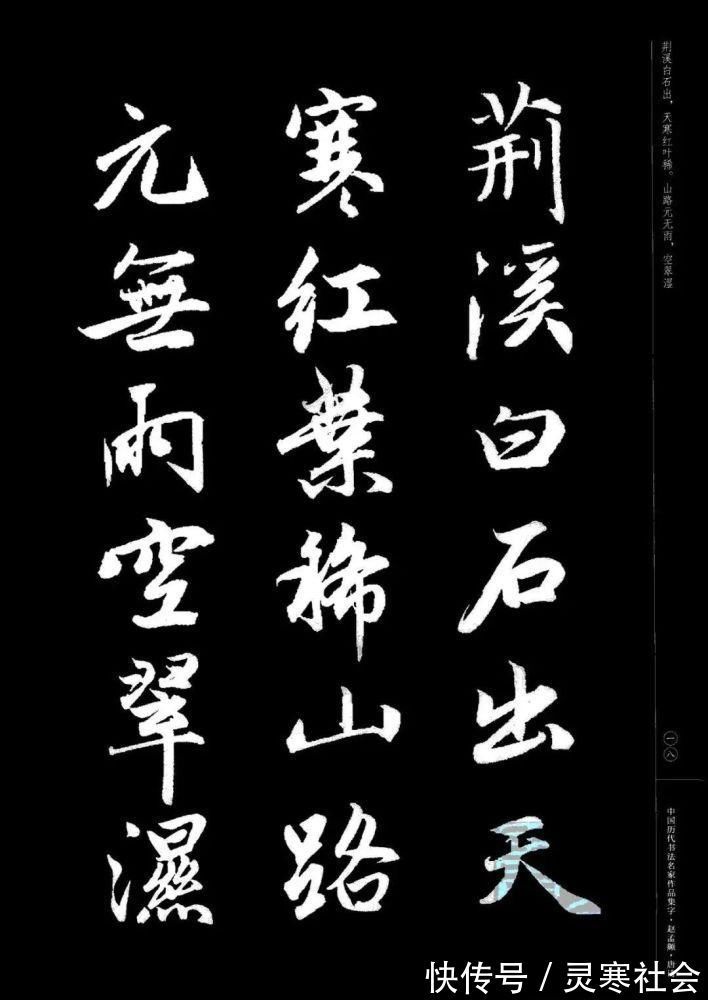 荆溪白石出天
寒红葉稀山路
元無雨空翠濕
荆溪白石出，天寒红叶稀。山路元无雨，空翠湿
一八
中国历代书法名家作品集字·赵孟頫·唐诗
快传号／灵寒社会